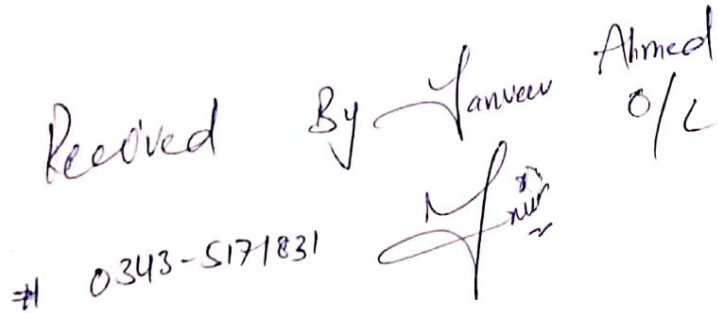 Received By Tanveer Ahmed
O/L
# 0343-5171831